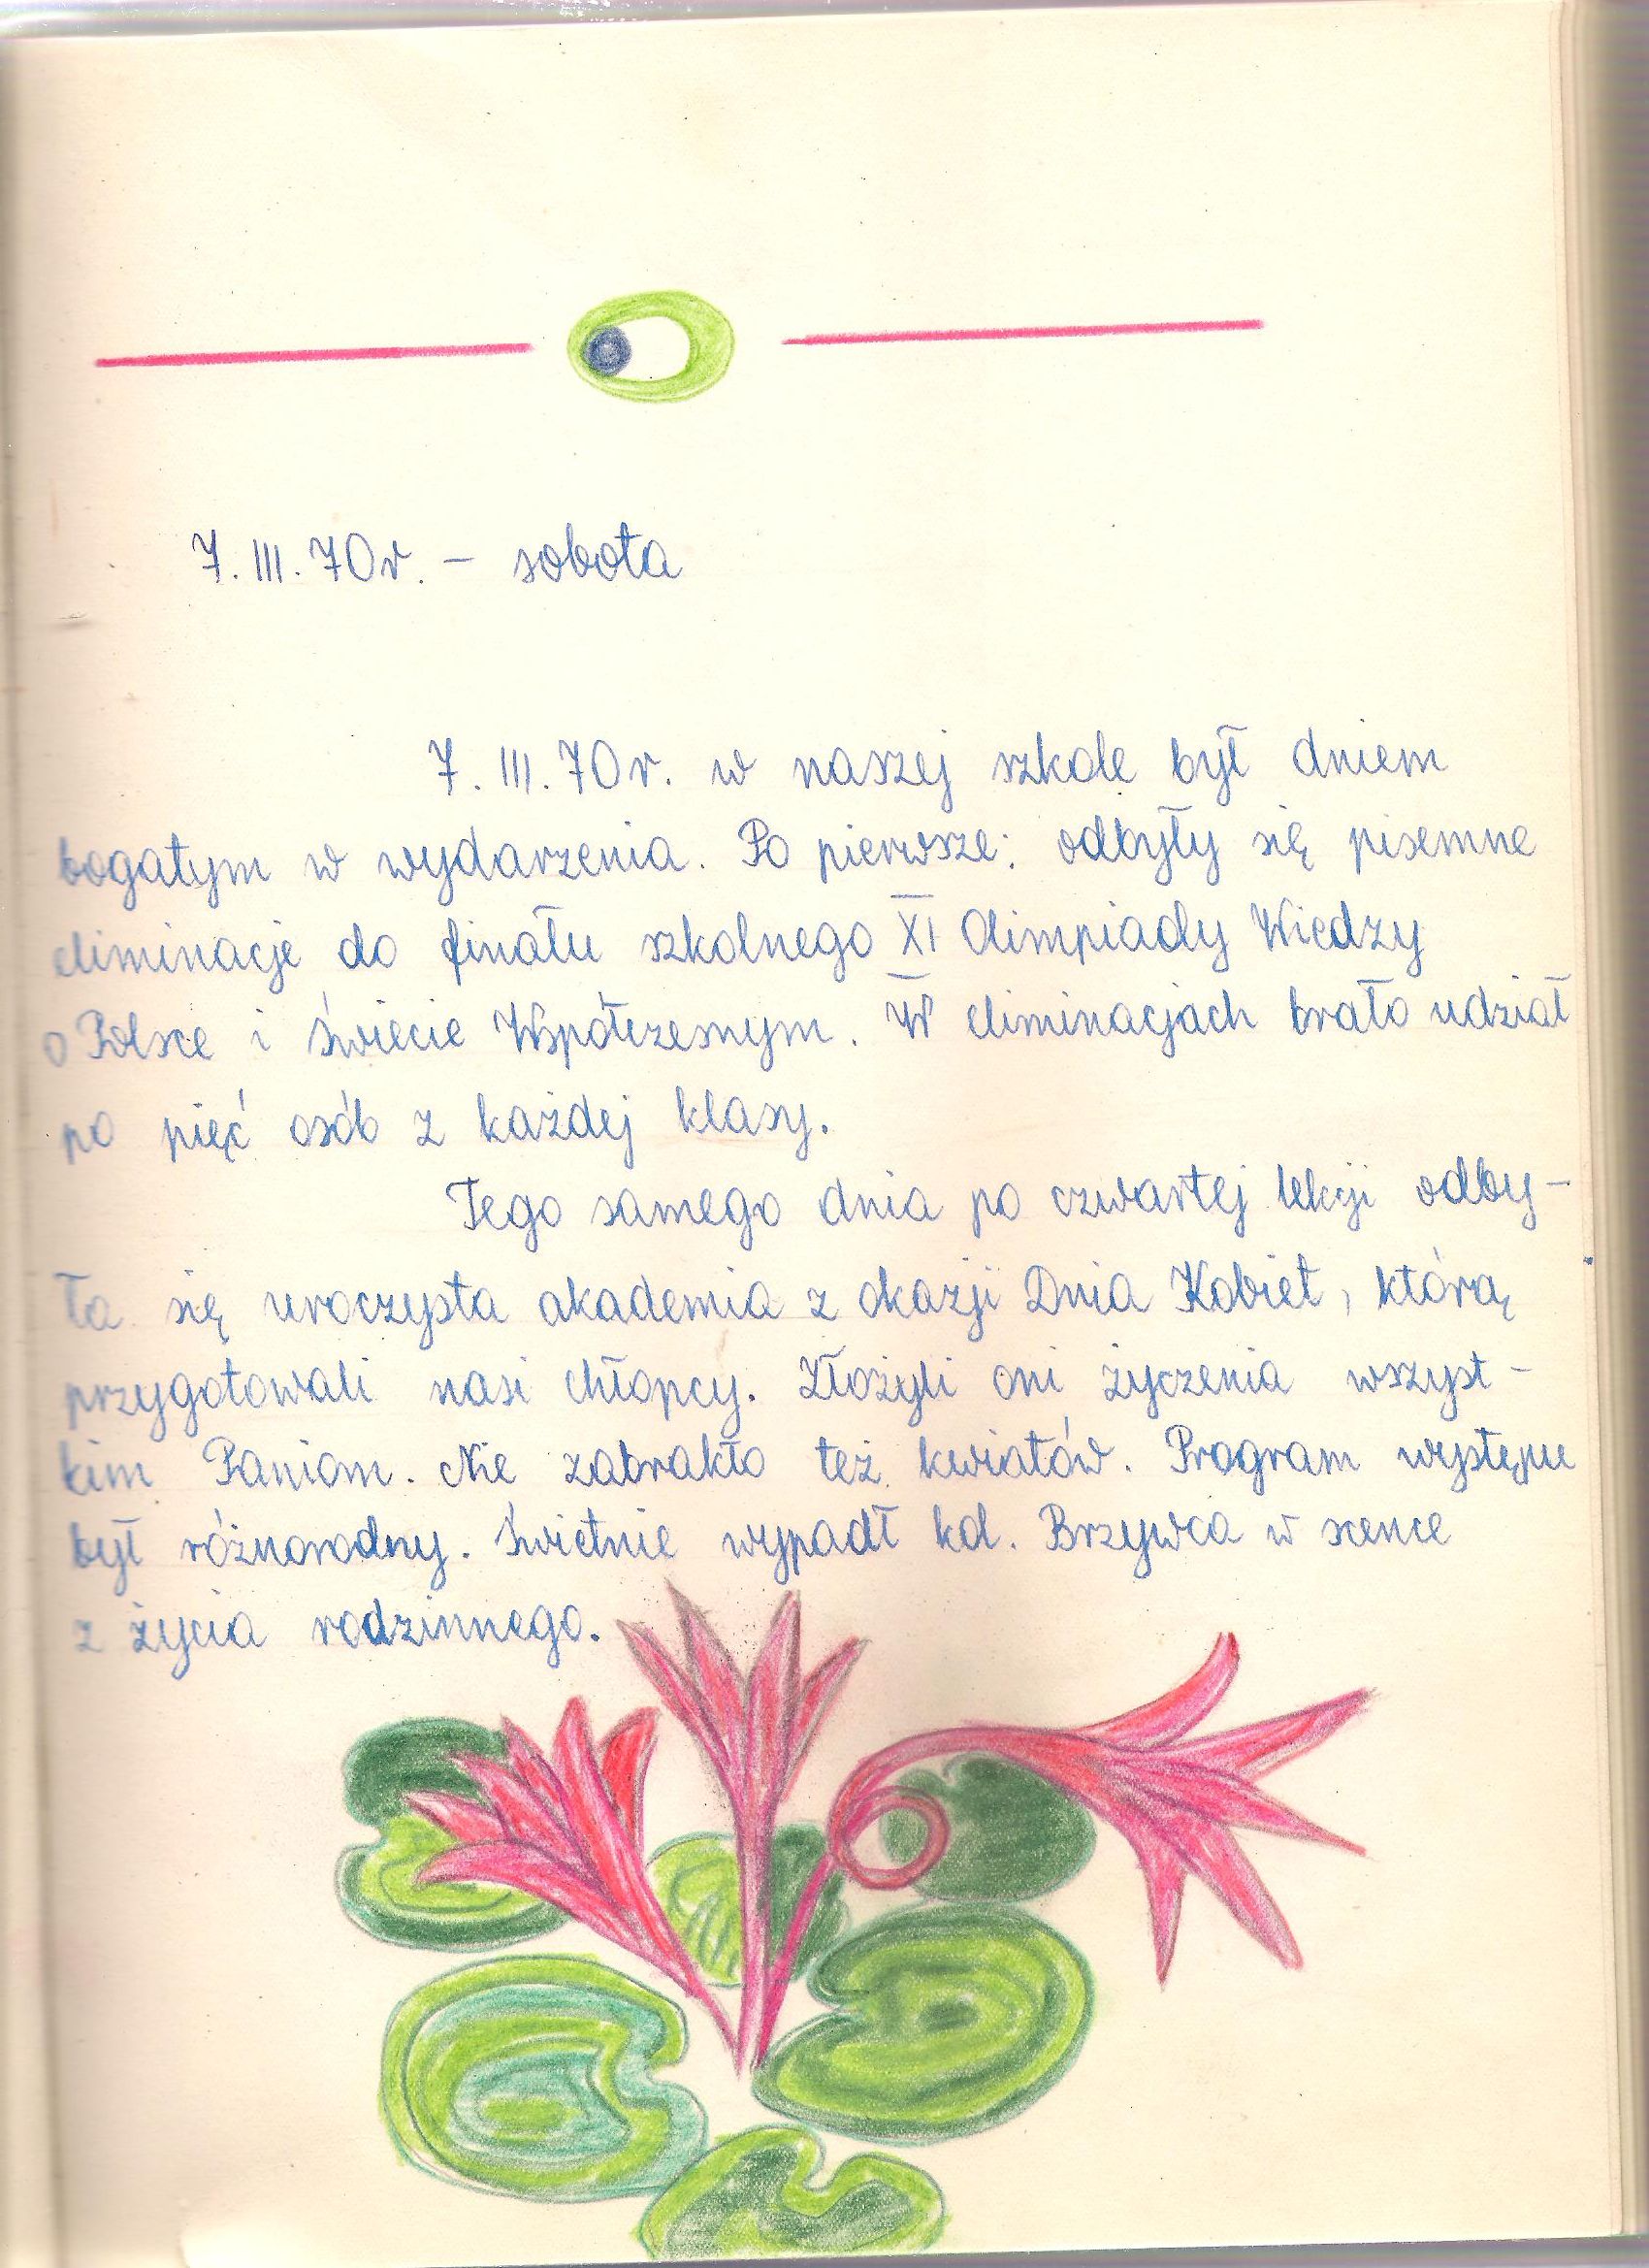 7.III.70r. – sobota
7.III.70r. w naszej szkole był dniem
bogatym w wydarzenia. Po pierwsze: odbyły się pisemne
eliminacje do finału szkolnego XI Olimpiady Wiedzy
o Polsce i Świecie Współczesnym. W eliminacjach brało udział
po pięć osób z każdej klasy.
Tego samego dnia po czwartej lekcji odby-
ła się uroczysta akademia z okazji Dnia Kobiet, którą
przygotowali nasi chłopcy. Złożyli oni życzenia wszyst-
kim Paniom. Nie zabrakło też kwiatów. Program występu
był różnorodny. Świetnie wypadł kol. Brzywca w scence
z życia rodzinnego.